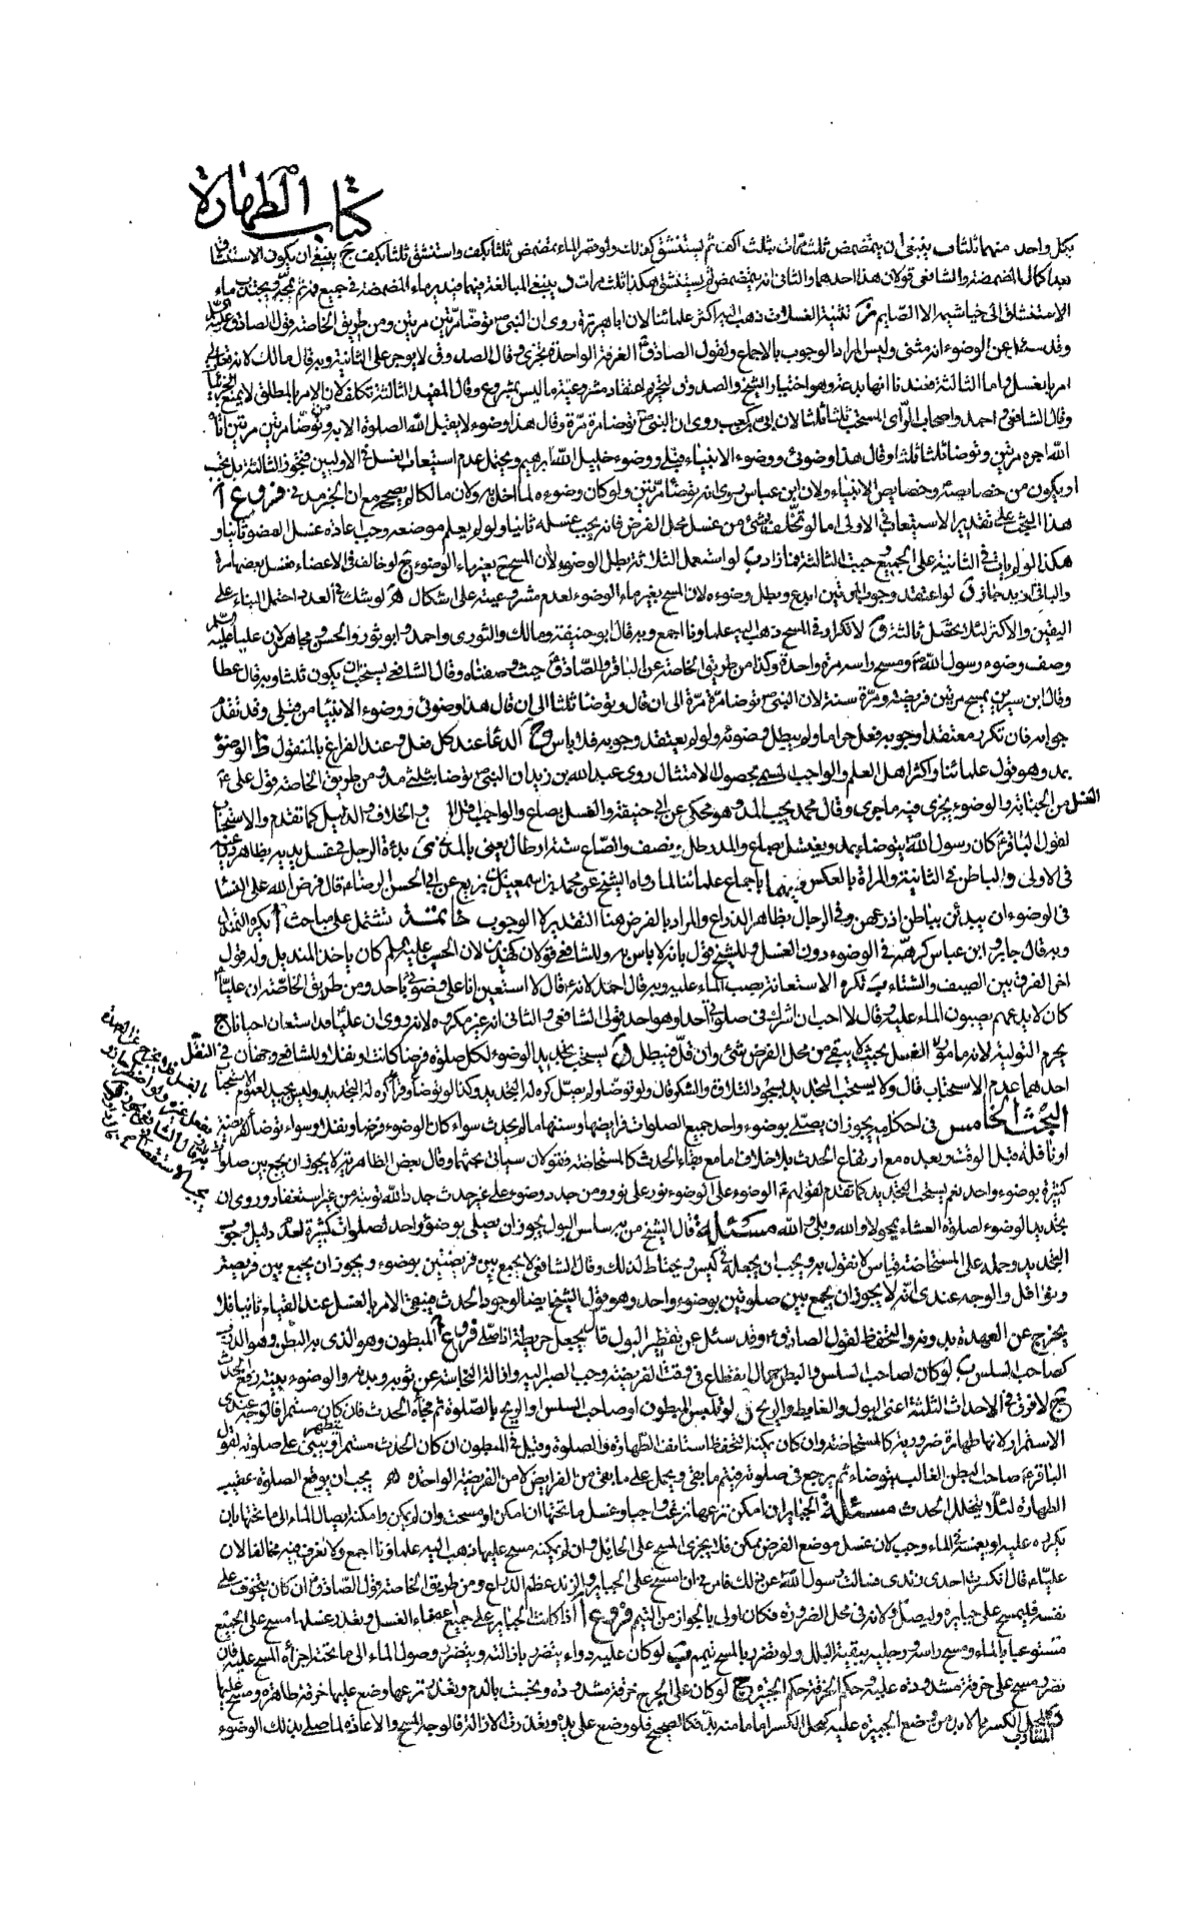 كتاب الطهارة
بكل واحد منهما ثلثا ب ينبغي ان يتمضمض ثلث مرات بثلث اكف ثم يستنشق كذلك ولو قصر الماء تمضمض ثلثا بكف واستنشق ثلثا بكف ج ينبغي ان يكون الاستنشاق
بعد اكمال المضمضة والشافعي قولان هذا احدهما والثاني انه يتمضمض ثم يستنشق هكذا ثلث مرات د ينبغي المبالغة فيهما فيدير ماء المضمضة في جميع فمه ثم يمجه ويجتذب ماء
الاستنشاق الى خياشيمه الا الصايم تثنية الغسلات ذهب اليه اكثر علمائنا لان ابا هريرة روى ان النبي ص توضأ مرتين مرتين ومن طريق الخاصة قول الصادق عليه السلم
وقد سئل عن الوضوء انه مثنى وليس المراد الوجوب بالاجماع ولقول الصادق ع الغرفة الواحدة تجزى وقال الصدوق لا يوجر على الثانية وبه قال مالك لانه تعالى
امر بالغسل واما الثالثة فعندنا انها بدعة وهو اختيار الشيخ والصدوق لتحريم اعتقاد مشروعية ما ليس بمشروع وقال المفيد الثالثة تكلف لان الامر المطلق لا يمنع الجزئيات
وقال الشافعي واحمد واصحاب الرأي المستحب ثلثا ثلثا لان ابي بن كعب روى ان النبي ص توضأ مرة مرة وقال هذا وضوء لا يقبل الله الصلوة الا به وتوضأ مرتين مرتين
الله اجره مرتين وتوضأ ثلثا ثلثا وقال هذا وضوئي ووضوء الانبياء قبلي ووضوء خليل الله ابرهيم ويحتمل عدم استيعاب الغسل في الاوليين فتجوز الثالثة بل تجب
او يكون من خصايصه وخصايص الانبياء ولان ابن عباس روى انه توضأ مرتين ولو كان وضوءه لما اخل به ولان مالكا لم يصححه مع ان الجز من فروع ا
هذا البحث على تقدير الاستيعاب في الاولى اما لو تخلف شئ من غسل محل الفرض فانه يجب غسله ثانيا ولو لم يعلم موضعه وجب اعادة غسل العضو ثانيا و
هكذا لو لم يات في الثانية على الجميع وجبت الثالثة فما زاد ب لو استعمل الثلاثة بطل الوضوء لان المسح بغير ماء الوضوء ج لو خالف في الاعضاء فغسل بعضها مرة
والباقي ازيد جاز د لو اعتقد وجوب المرتين ابدع وبطل وضوءه لان المسح بغير ماء الوضوء لعدم مشروعيته على اشكال ه لو شك في العدد احتمل البناء على
اليقين والاكثر لئلا يحصل ثالثة و لا تكرار في المسح ذهب اليه علماؤنا اجمع وبه قال ابو حنيفة ومالك والثوري واحمد وابو ثور والحسن ومجاهد لان عليا عليه السلم
وصف وضوء رسول الله ص ومسح راسه مرة واحدة وكذا من طريق الخاصة عن الباقر والصادق ع حيث وصفتاه وقال الشافعي يستحب ان يكون ثلثا وبه قال عطا
وقال ابن سيرين يمسح مرتين فريضة ومرة سنة لان النبي ص توضأ مرة مرة الى ان قال وتوضأ ثلثا الى ان قال هذا وضوئي ووضوء الانبياء من قبلي وقد تقدم
جوابه فان تكرر معتقدا وجوبه فعل حراما ولم يبطل وضوئه ولو لم يعتقد وجوبه فلا باس ح الدعاء عند كل فعل وعند الفراغ بالمنقول ط الوضوء
بمد وهو قول علمائنا واكثر اهل العلم والواجب المسمى لحصول الامتثال روى عبد الله بن زيد ان النبي ص توضأ بثلثي مد ومن طريق الخاصة قول علي ع
الغسل من الجنابة والوضوء يجزى فيه ما جرى وقال محمد يجب المد وهو محكي عن ابي حنيفة والغسل بصاع والواجب اقل والخلاف والدليل كما تقدم والاستحباب
لقول الباقر ع كان رسول الله ص يتوضأ بمد ويغتسل بصاع والمد رطل ونصف والصاع ستة ارطال يعني بالمدني ى بدءة الرجل في غسل يديه بظاهر ذراعيه
في الاولى والباطن في الثانية والمراة بالعكس فيهما باجماع علمائنا لما رواه الشيخ عن محمد بن اسمعيل بن بزيع عن ابي الحسن الرضا ع قال فرض الله على النساء
في الوضوء ان يبدئن بباطن اذرعهن وفي الرجال بظاهر الذراع والمراد بالفرض هنا التقدير لا الوجوب خاتمة تشتمل على مباحث ا يكره التمندل
وبه قال جابر وابن عباس كرهه في الوضوء دون الغسل وللشيخ قول بانه لا باس به وللشافعي قولان كهذين لان الحسين عليه السلم كان ياخذ المنديل وله قول
اخر الفرق بين الصيف والشتاء ب تكره الاستعانة بصب الماء عليه وبه قال احمد لانه ع قال لا استعين انا على وضوئي باحد ومن طريق الخاصة ان عليا ع
كان لا يدعهم يصبون الماء عليه وقال لا احب ان اشرك في صلوتي احدا وهو احد قولي الشافعي والثاني انه غير مكروه لانه روى ان عليا ع استعان احيانا ج
يحرم التولية لانه مامور بالغسل بحيث لا يبقى من محل الفرض شئ وان قل فيبطل د يستحب تجديد الوضوء لكل صلوة فرضا كانت او نفلا وللشافعي وجهان في النفل
احدهما عدم الاستحباب قال ولا يستحب التجديد لسجود التلاوة والشكر قال ولو توضأ ولم يصل كره له التجديد وكذا لو توضأ وقرأ كره له التجديد وليس بجيد لعموم الاستحباب
البحث الخامس في احكامه يجوز ان يصلي بوضوء واحد جميع الصلوات فرايضها وسننها ما لم يحدث سواء كان الوضوء فرضا ونفلا وسواء توضأ لفريضة
او نافلة قبل الوقت وبعده مع ارتفاع الحدث بلا خلاف اما مع بقاء الحدث كالمستحاضة فقولان سيأتي بحثهما وقال بعض الظاهرية لا يجوز ان يجمع بين صلوات
كثيرة بوضوء واحد نعم يستحب التجديد كما تقدم لقولهم ع الوضوء على الوضوء نور على نور ومن جدد وضوءه على غير حدث جدد الله توبته من غير استغفار وروى ان
تجديد الوضوء لصلوة العشاء يمحو لا والله وبلى والله مسئلة قال الشيخ من به سلس البول يجوز ان يصلي بوضوء واحد لصلوات كثيرة لعدم دليل وجوب
التجديد وحمله على المستحاضة قياس لا نقول به ويجب ان يجعله في كيس ويحتاط لذلك وقال الشافعي لا يجمع بين فريضتين بوضوء ويجوز ان يجمع بين فريضة
ونوافل والوجه عندي انه لا يجوز ان يجمع بين صلوتين بوضوء واحد وهو قول الشيخ ايضا لوجود الحدث فينبغي الامر بالغسل عند القيام ثانيا فلا
يخرج عن العهدة بدونه والتحفظ لقول الصادق ع وقد سئل عن تقطير البول قال يجعل خريطة اذا صلى فروع ا المبطون وهو الذي به البطن وهو الذرب
كصاحب السلس ب لو كان لصاحب السلس والبطن حال انقطاع في وقت الفريضة وجب الصبر اليه وازالة النجاسة عن ثوبه وبدنه والوضوء بنية رفع الحدث
ج لا فرق في الاحداث الثلثة اعني البول والغايط والريح د لو تلبس المبطون او صاحب السلس او الريح بالصلوة ثم فجأه الحدث فان كان مستمرا فالوجه عندي
الاستمرار لانها طهارة ضرورية كالمستحاضة وان كان يمكنه التحفظ استانف الطهارة والصلوة وقيل في المبطون ان كان الحدث مستمرا يتطهر ويبنى على صلوته لقول
الباقر ع صاحب البطن الغالب يتوضأ ثم يرجع في صلوته فيتم ما بقى ويحمل على ما بقى من الفرايض لا من الفريضة الواحدة ه يجب ان يوقع الصلوة عقيب
الطهارة لئلا يتخلل الحدث مسئلة الجباير ان امكن نزعها نزعت واجبا وغسل ما تحتها ان امكن او مسحت وان لم يمكن وامكنه ايصال الماء الى ما تحتها بان
يكرره عليه او يغمسه في الماء وجب لان غسل موضع الفرض ممكن فلا يجزى المسح على الحايل وان لم يمكنه مسح عليها ذهب اليه علماؤنا اجمع ولا نعرف فيه مخالفا لان
عليا ع قال انكسرت احدى زندي فسالت رسول الله ص عن ذلك فامرني ان امسح على الجباير والزند عظم الذراع ومن طريق الخاصة قول الصادق ع ان كان يتخوف على
نفسه فليمسح على جبايره وليصل ولانه في محل الضرورة فكان اولى بالجواز من التيمم فروع ا اذا كانت الجباير على جميع اعضاء الغسل وتعذر غسلها مسح على الجميع
مستوعبا بالماء ومسح راسه ورجليه ببقية البلل ولو تضرر بالمسح تيمم ب لو كان عليه دواء يتضرر بازالته ويتضرر بوصول الماء الى ما تحته اجزأه المسح عليه فان
تضرر مسح على خرقة مشدودة عليه وحكم الخرقة حكم الجبيرة ج لو كان على الجرح خرقة مشدودة ونجست بالدم وتعذر نزعها وضع عليها خرقة طاهرة ومسح عليها
د محل الكسر لا بد من وضع الجبيرة عليه كمحل الكسر اما ما منه بد فكالصحيح فلو وضع على بدنه وتعذرت الازالة فالوجه المسح والاعادة لما صلى بذلك الوضوء